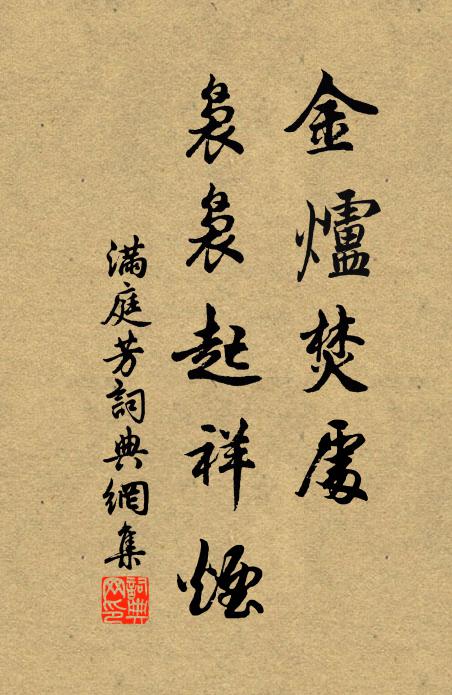 金爐焚處
裊裊起祥煙
滿庭芳詞典網集
詞典網印